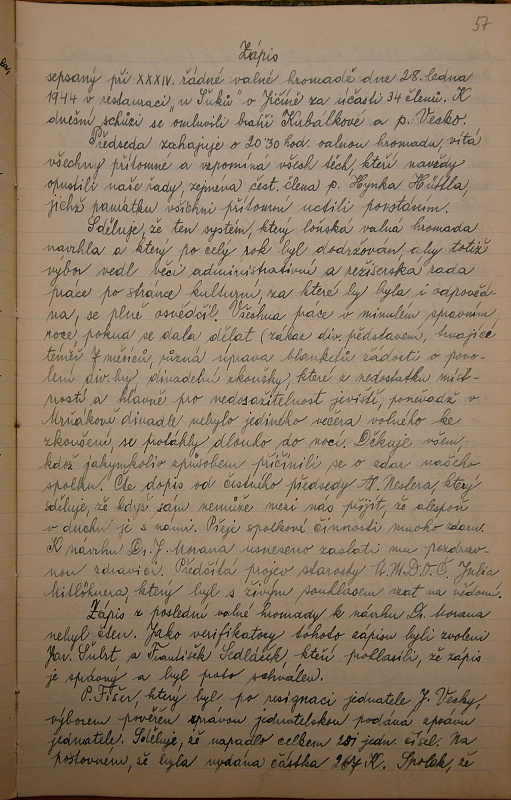 57
Zápis
sepsaný při XXXIV. řádné valné hromadě dne 28. ledna
1944 v restauraci „u Suků" v Jičíně za účasti 34 členů. K
dnešní schůzi se omluvili bratři Kubálkové a p. Vesko.
Předseda zahajuje o 20·30 hod. valnou hromadu, vítá
všechny přítomné a vzpomíná všech těch, kteří navždy
opustili naše řady, zejména čest. člena p. Hynka
jichž památku všichni přítomní uctili povstáním.
Sděluje, že ten systém, který loňská valná hromada
navrhla a který po celý rok byl dodržován, aby totiž
výbor vedl věci administrativní a režisérská rada
práce po stránce kulturní, za které by byla i odpověd-
na, se plně osvědčil. Všechna práce v minulém správním
roce pokud se dala dělat (zákaz div. představení, trvající
téměř 7 měsíců, různá úprava blanketů žádostí o povo-
lení div. hry, divadelní zkoušky, které z nedostatku míst-
ností a hlavně pro nedosažitelnost jeviště, poněvadž v
Mrňákově divadle nebylo jediného večera volného ke
zkoušení, se protáhly dlouho do noci. Děkuje všem,
kdož jakýmkoliv způsobem přičinili se o zdar našeho
spolku. Čte dopis od čestného předsedy M. Neslera, který
sděluje, že když sám nemůže mezi nás přijít, že alespoň
v duchu je s námi. Přeje spolkové činnosti mnoho zdaru.
K návrhu Dr. J. Morana usneseno zaslati mu pozdrav-
nou zdravici. Předčítá projev starosty Ú.M.D.O.Č. Julia
který byl s živým souhlasem vzat na vědomí.
Zápis z poslední valné hromady k návrhu Dr. Morana
nebyl čten. Jako verifikatory tohoto zápisu byli zvoleni
Jar. Šubrt a František Sedláček, kteří prohlásili, že zápis
je správný a byl proto schválen.
P. Fišer, který byl po resignaci jednatele J. Vesky,
výborem pověřen správou jednatelskou podává zprávu
jednatele. Sděluje, že napadlo celkem 251 jedn. čísel. Na
poštovném, že byla vydána částka 264 K. Spolek, že